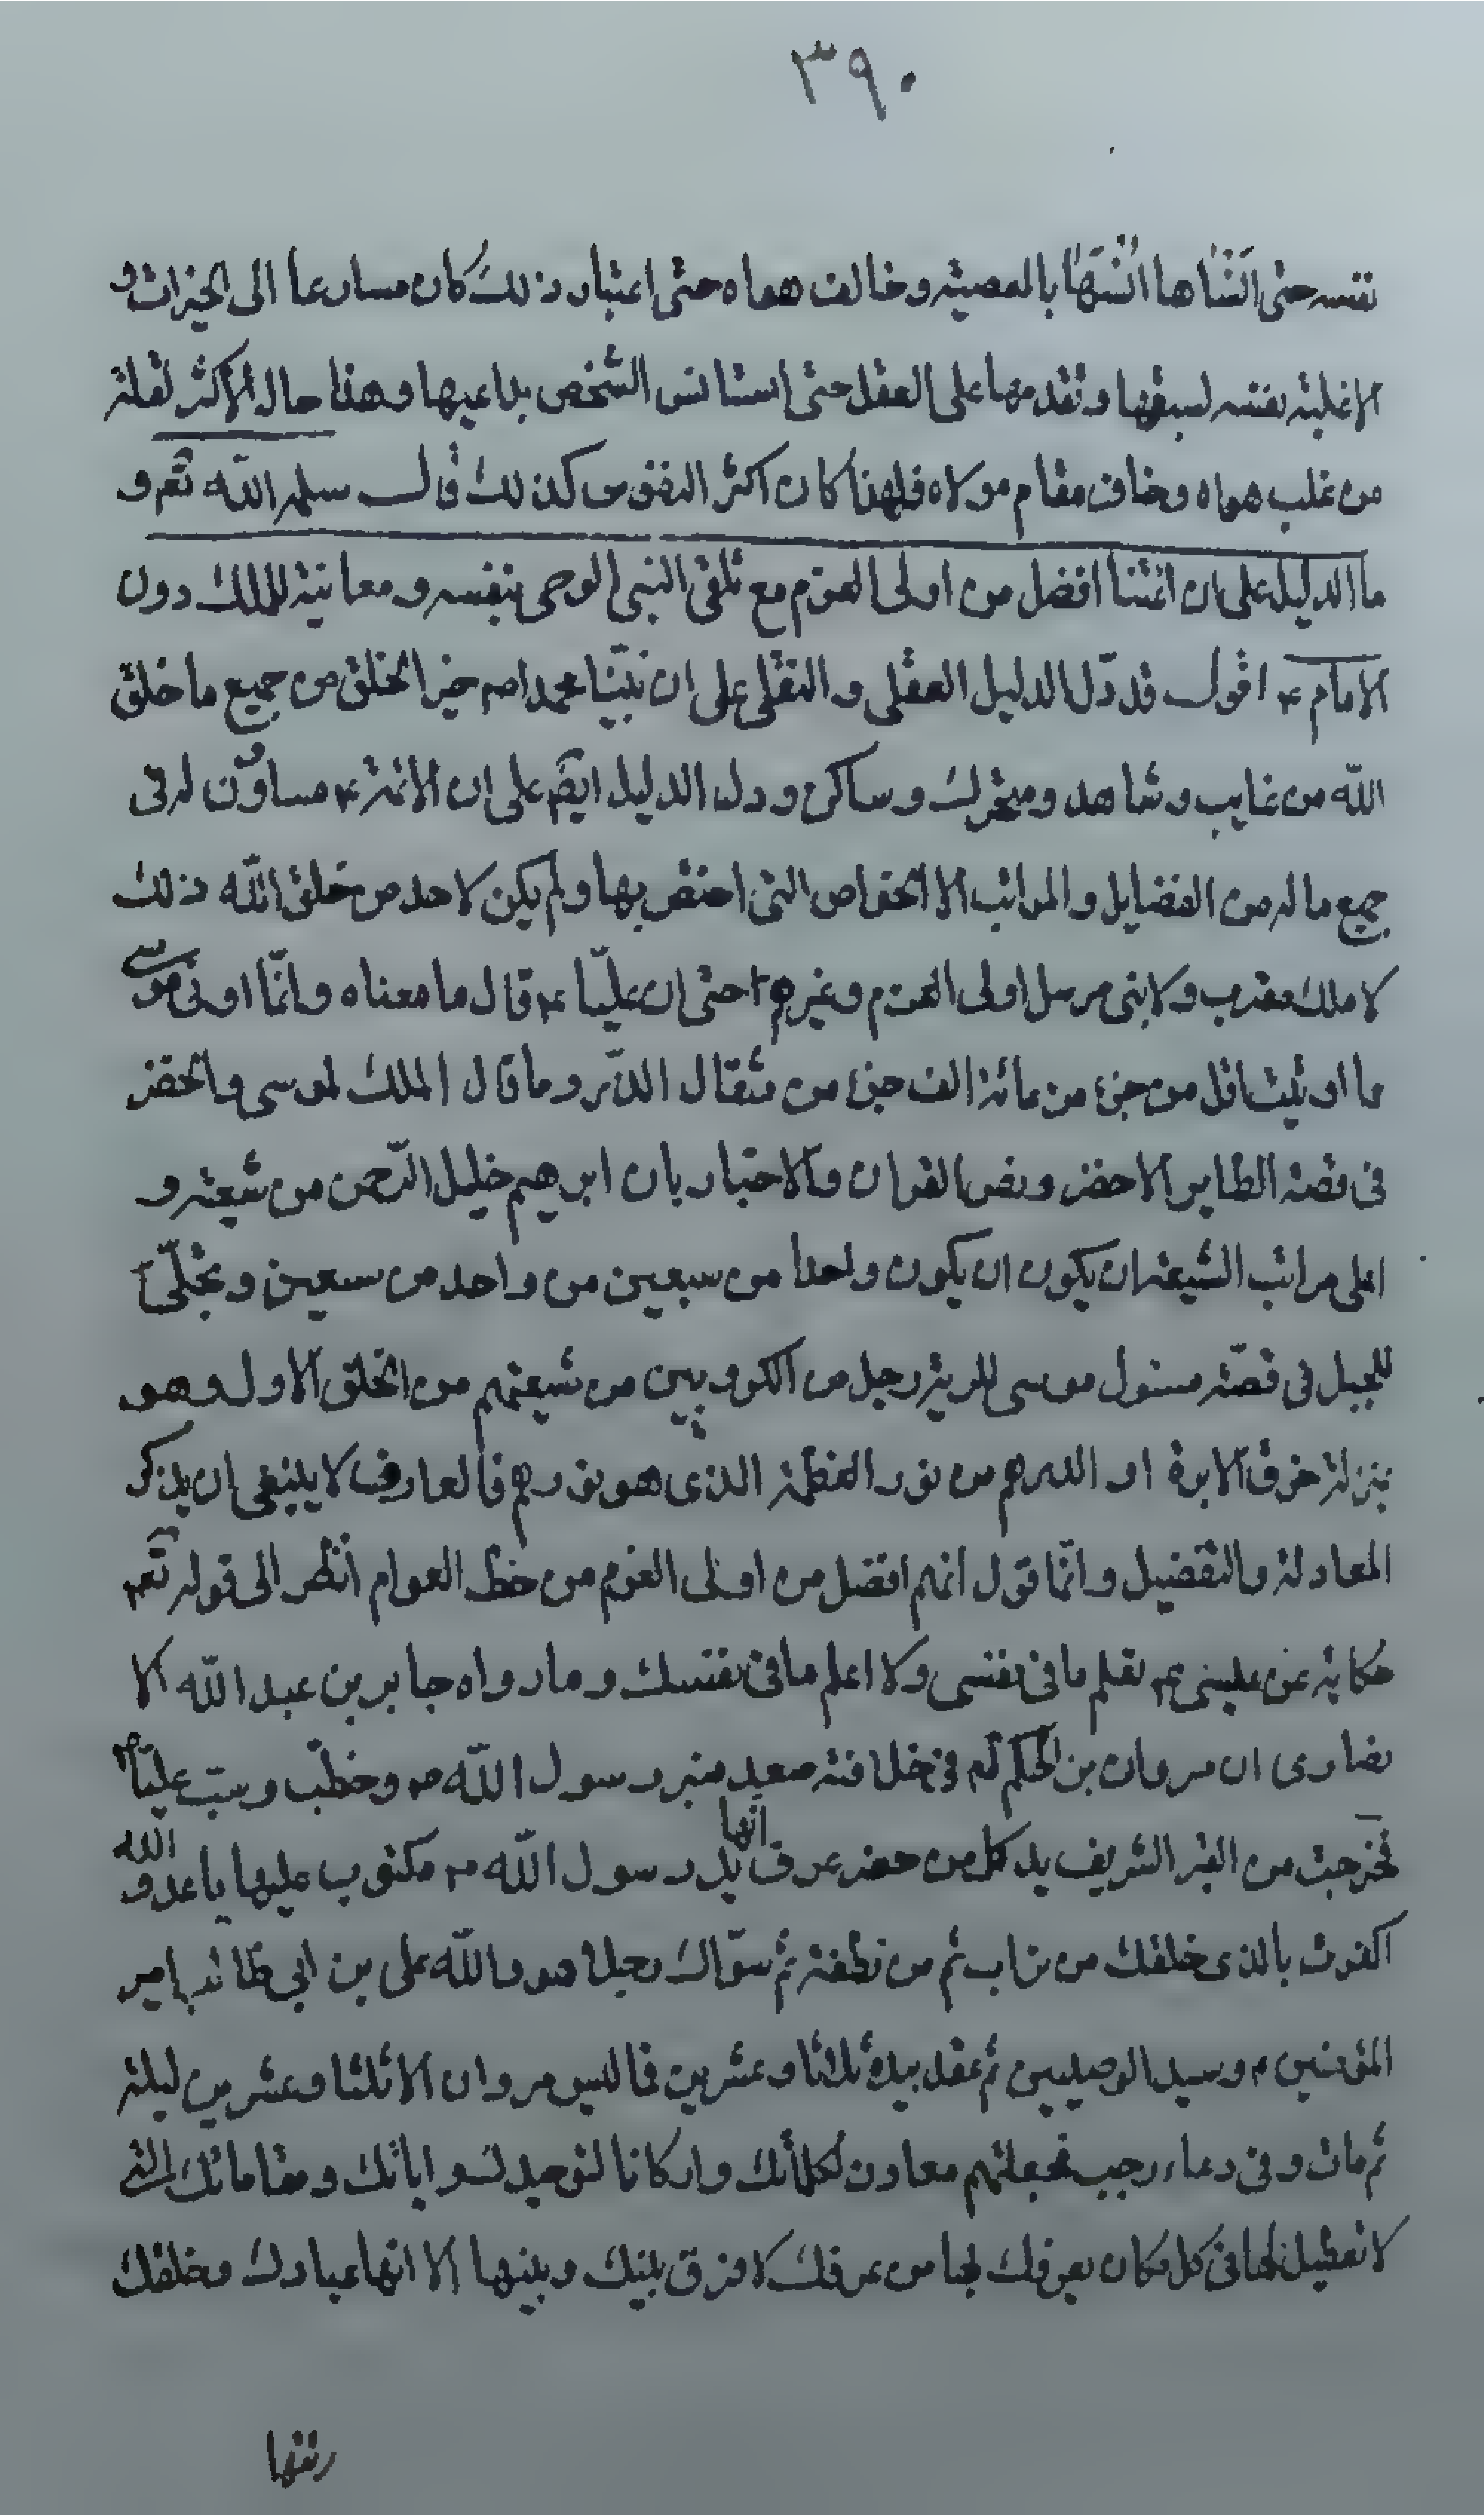 ٣٩٠
نفسه حتى انساها انسها بالمعصية وخالف هواه حتى اعتاد ذلك كان مسارعا الى الخيرات و
الاغلبية نفسه لسبقها وتقدمها على العقل حتى استانس الشخص بداعيها وهذا حال الاكثر لقلة
من غلب هواه وخاف مقام مولاه فلهذا كان اكثر النفوس كذلك قال سلمه الله تعم و
ما الدليل على ان ائمتنا افضل من اولى العزم مع تلقى النبى الوحى بنفسه ومعاينة للملك دون
الامام ع اقول قد دل الدليل العقلى والنقلى على ان نبينا محمدا ص خير الخلق من جميع ما خلق
الله من غايب وشاهد ومتحرك وساكن ودل الدليل ايضم على ان الائمة ع مساوون له فى
جميع ما له من الفضايل والمراتب الا الخواص التى اختص بها ولم يكن لاحد من خلق الله ذلك
لا ملك مقرب ولا نبى مرسل اولى العزم وغيرهم حتى ان عليا ع قال ما معناه وانما اوتى موسى
ما اوتيت اقل من جزء من مائة الف جزء من مثقال الذر وما قال الملك لموسى والخضر
فى قصة الطاير الاخضر ونص القران والاخبار بان ابرهيم خليل الرحمن من شيعته و
اعلى مراتب الشيعة ان يكون ان يكون واحدا من سبعين من واحد من سبعين وتجلى
للجبل فى قصة مسئول موسى للرؤية رجل من الكروبيين من شيعتهم من الخلق الاول وهو
بمنزلة خرق الابرة او الدرهم من نور العظمة الذى هو نورهم فالعارف لا ينبغى ان يذكر
المعادلة والتفضيل وانما قول انهم افضل من اولى العزم من حظ العوام انظر الى قوله تعم
حكاية عن عيسى ع تعلم ما فى نفسى ولا اعلم ما فى نفسك وما رواه جابر بن عبد الله الا
نصارى ان مروان بن الحكم لم فى خلافته صعد منبر رسول الله ص وخطب وسب عليا ع
فخرجت من القبر الشريف يد كل من حضر عرف انها يد رسول الله ص مكتوب عليها يا عدو الله
اكفرت بالذى خلقك من تراب ثم من نطفة ثم سواك رجلا هو والله على بن ابى طالب امير
المؤمنين ع وسيد الوصيين ثم عقد بيده ثلاثا وعشرين فالبس مروان الا ثلثا وعشرين ليلة
ثم مات وفى دعاء رجب فجعلتهم معادن لكلماتك واركانا لتوحيدك واياتك ومقاماتك التى
لا تعطيل لها فى كل مكان يعرفك بها من عرفك لا فرق بينك وبينها الا انها عبادك وخلقك
رتقها